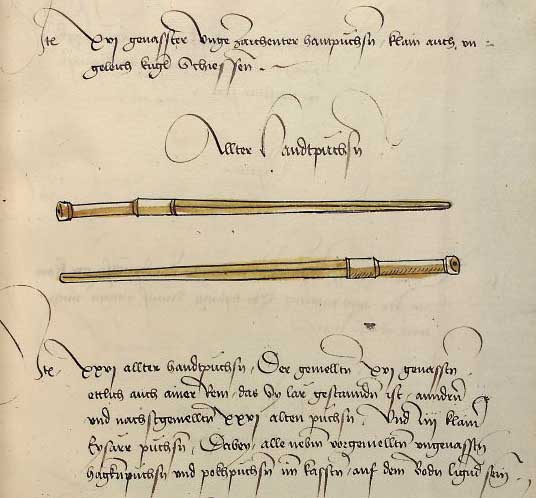 Ite XVI gevasster unge zaichenter hantpuchsn klain auch un=
geleich kugl Schiessen.
Allter Handtpuchsn
Ite XXVI allter handtpuchsn, Der gemelltn XVI gevasstn
ettlich auch ainer Rem, das Sy lar gestanndn ist, annders
und nachstgemelltn XXVI alten puchsn, Und iij klain
Eysnn puchsn, Dabey, alle nebn vorgemelltn ungevassten
hagknpuchsn und pokhpuchsn im kasstn, auf dem Bodn ligund sein